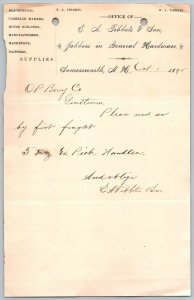 BLACKSMITHS,
CARRIAGE MAKERS,
HORSE SHOERS,
MANUFACTURERS,
MACHINISTS,
PAINTERS,
SUPPLIES.
S. A. TIBBETS
W. J. TIBBETS
OFFICE OF
S. A. Tibbets & Son,
Jobbers in General Hardware.
Somersworth, N. H. Oct 189
O P Berry Co
Gentlemen
Please send us
by first freight
5 Doz Ex Pick Handles
And oblige